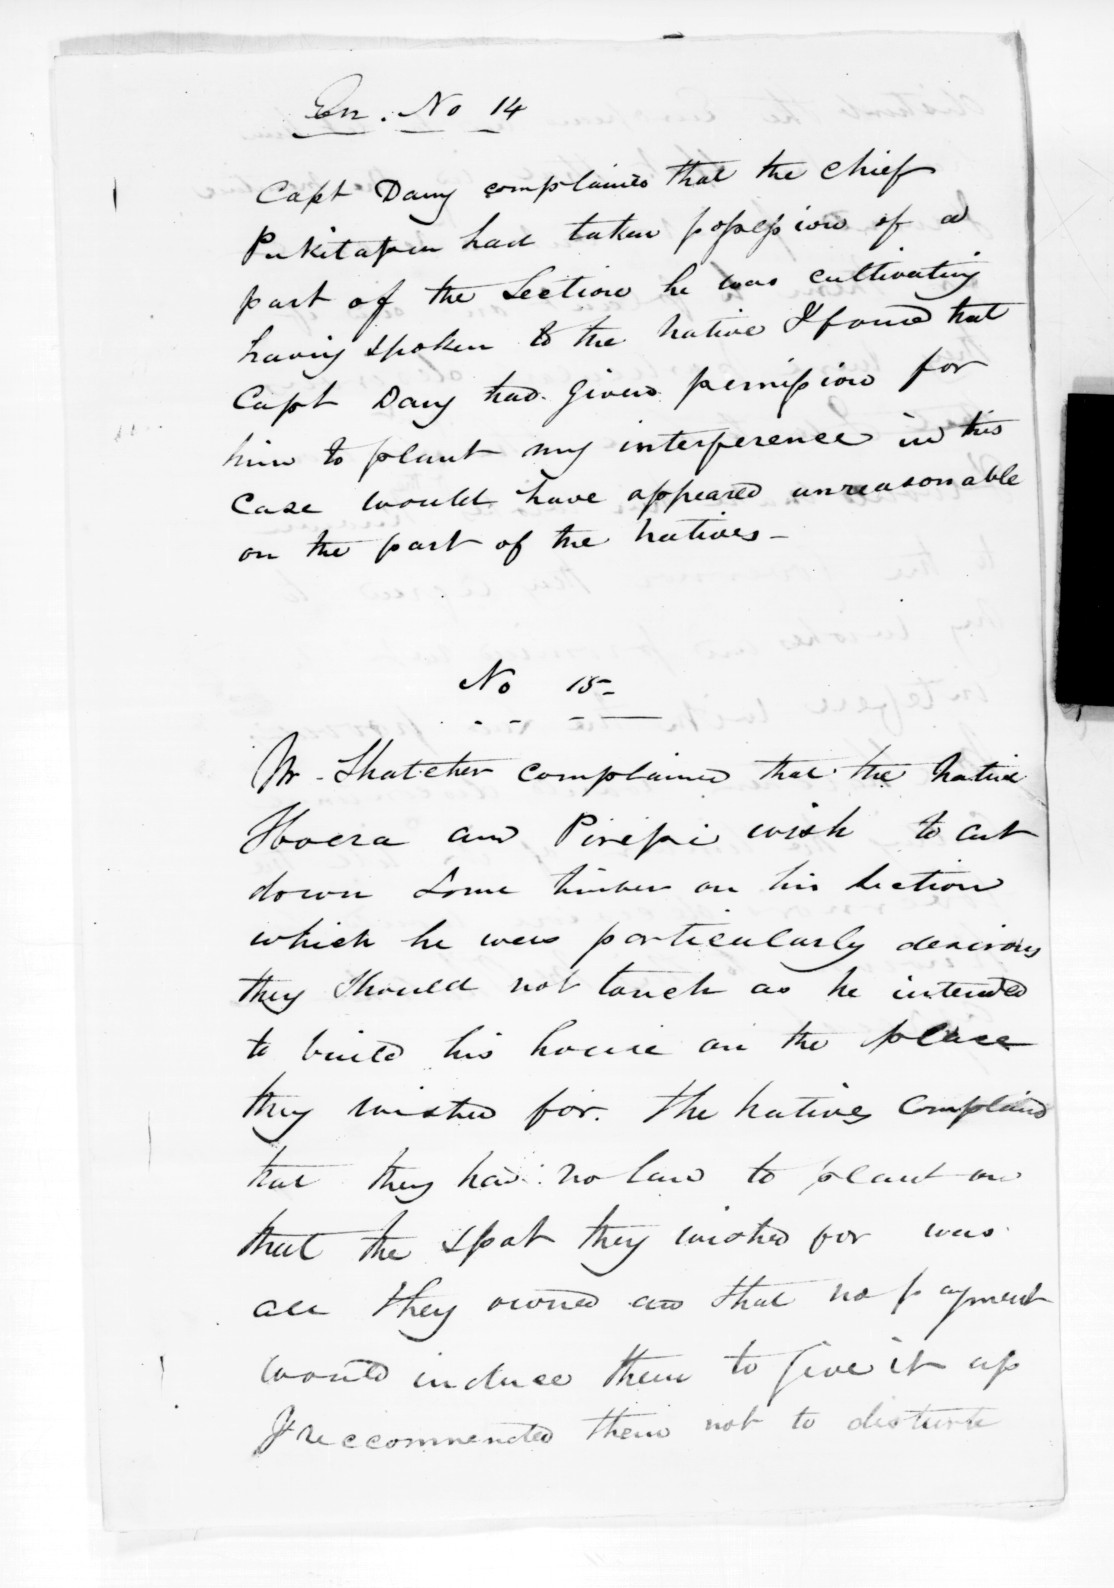 En. No 14
Capt Davy complained that the chief
Pukitapu had taken possession of a
part of the Section he was cultivating
having spoken to the native I found that
Capt Davy had given permission for
him to plant my interference in this
case would have appeared unreasonable
on the part of the Natives -
No 15-
Mr. Thatcher complained that the native
Hoera and Piripi wish to cut
down some timber on his section
which he was particularly desirous
they should not touch as he intended
to build his house on the place
they wished for. The natives complaind
that they had no land to plant on
that the spot they wished for was
all they owned and that no payment
would induce them to give it up
I reccommended them not to disturb